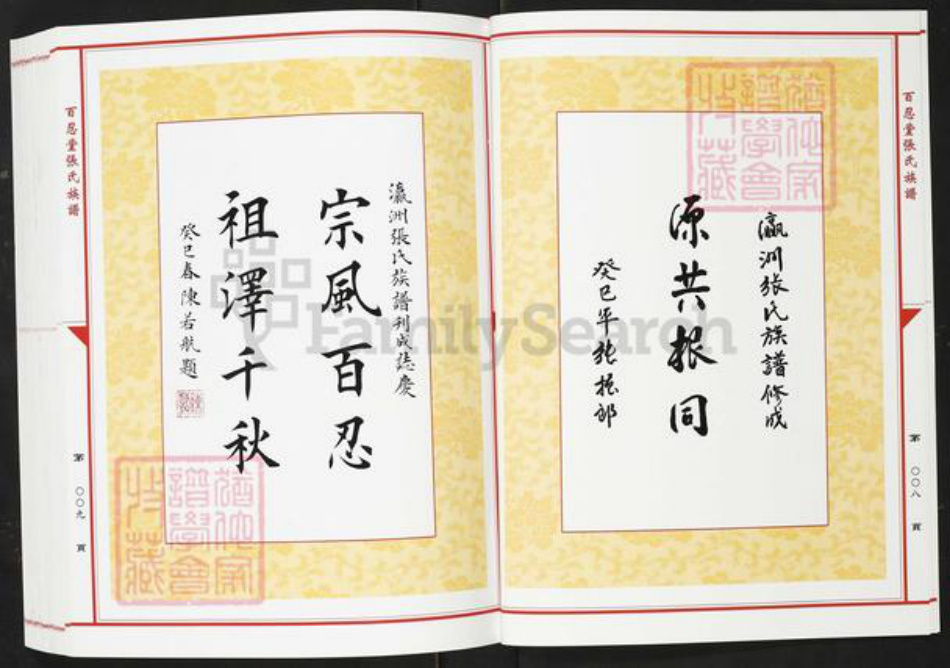 百忍堂張氏族譜
第〇〇八頁
瀛洲張氏族譜修成
源共根同
癸巳年張振郎
瀛洲張氏族譜刊成誌慶
宗風百忍
祖澤千秋
癸巳春陳若航題
百忍堂張氏族譜
第〇〇九頁
FamilySearch